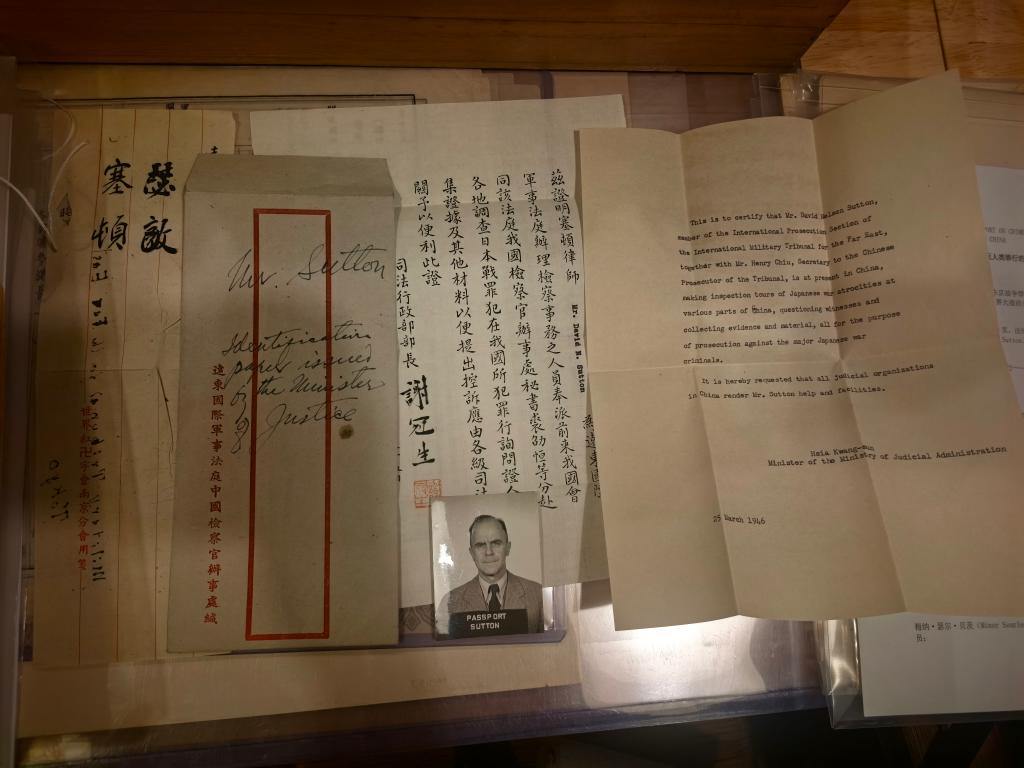 瑟敵
塞頓
世界紅卍字會南京分會用箋
Mr. Sutton
Identification
paper issued
by the Minister
of Justice
遠東國際軍事法庭中國檢察官辦事處緘
茲證明塞頓律師 Mr. David N. Sutton 為遠東國際
軍事法庭辦理檢察事務之人員奉派前來我國會
同該法庭我國檢察官辦事處秘書裘劭恒等分赴
各地調查日本戰罪犯在我國所犯罪行詢問證人
集證據及其他材料以便提出控訴應由各級司法
關予以便利此證
司法行政部部長 謝冠生
PASSPORT
SUTTON
This is to certify that Mr. David Nelson Sutton,
member of the International Prosecution Section of
the International Military Tribunal for the Far East,
together with Mr. Henry Chiu, Secretary to the Chinese
Prosecutor of the Tribunal, is at present in China,
making inspection tours of Japanese war atrocities at
various parts of China, questioning witnesses and
collecting evidence and material, all for the purpose
of prosecution against the major Japanese war
criminals.
It is hereby requested that all judicial organizations
in China render Mr. Sutton help and facilities.
Hsia Kwang-sun
Minister of the Ministry of Judicial Administration
25 March 1946
CHINA
Sutton
梅纳·瑟尔·贝茨 (Miner Searle
员: